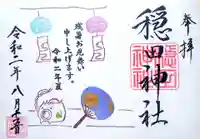 奉拝
穏田神社
残暑お見舞い
申し上げます。
令和二年夏
令和二年八月